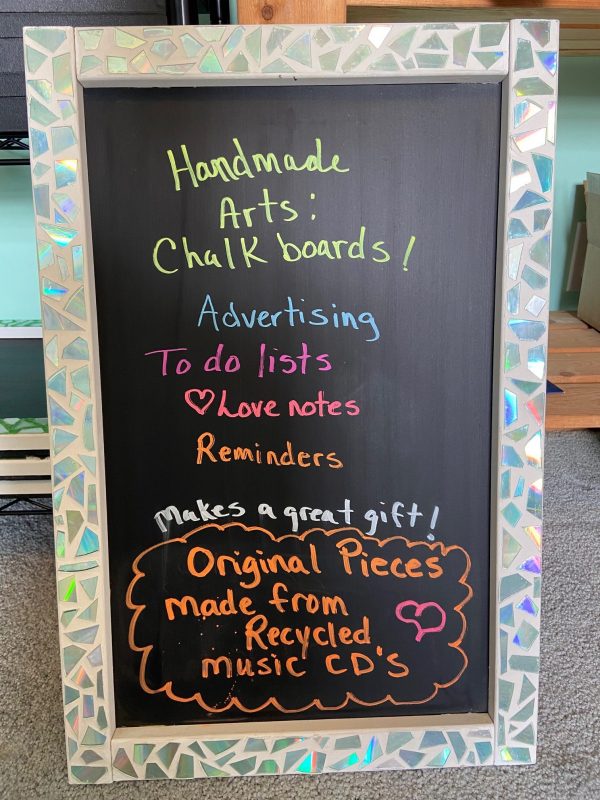 Handmade
Arts:
Chalk boards!
Advertising
To do lists
♡Love notes
Reminders
Makes a great gift!
Original Pieces
made from
Recycled
music CD's